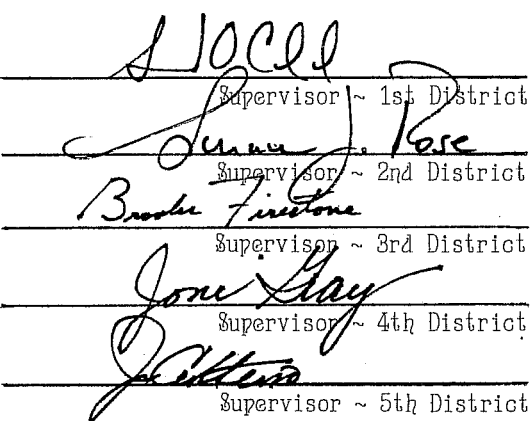 Supervisor ~ 1st District
Susan J. Rose
Supervisor ~ 2nd District
Brooks Firestone
Supervisor ~ 3rd District
Joni Gray
Supervisor ~ 4th District
Supervisor ~ 5th District